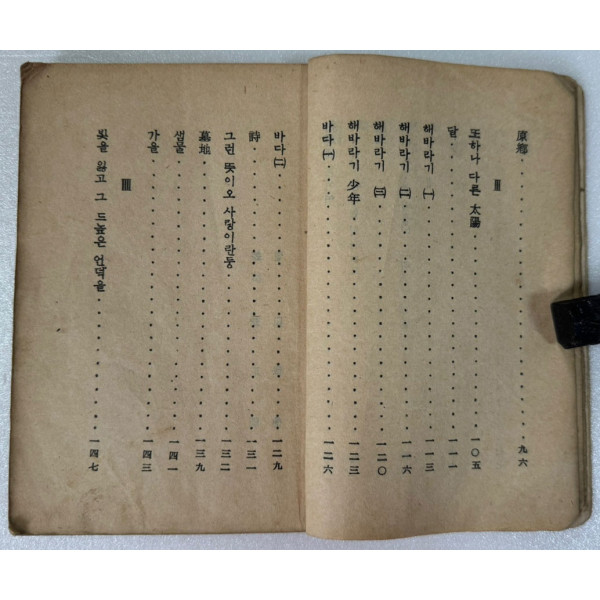 原鄕 · · · · · · · · · · · · · · · · 九六
Ⅲ
또하나 다른 太陽 · · · · · · · · · · 一〇五
달 · · · · · · · · · · · · · · · · 一一一
해바라기 (一) · · · · · · · · · · · · 一一三
해바라기 (二) · · · · · · · · · · · · 一一六
해바라기 (三) · · · · · · · · · · · · 一二〇
해바라기 少年 · · · · · · · · · · · · 一二三
바다 (一) · · · · · · · · · · · · · · 一二六
바다 (二) · · · · · · · · · · · · · · 一二九
詩 · · · · · · · · · · · · · · · · 一三一
그런 뜻이오 사랑이란둥 · · · · · · · 一三二
墓地 · · · · · · · · · · · · · · · 一三九
샘물 · · · · · · · · · · · · · · · 一四一
가을 · · · · · · · · · · · · · · · 一四三
Ⅳ
꽃을 잃고 그 드높은 언덕을 · · · · · · 一四七